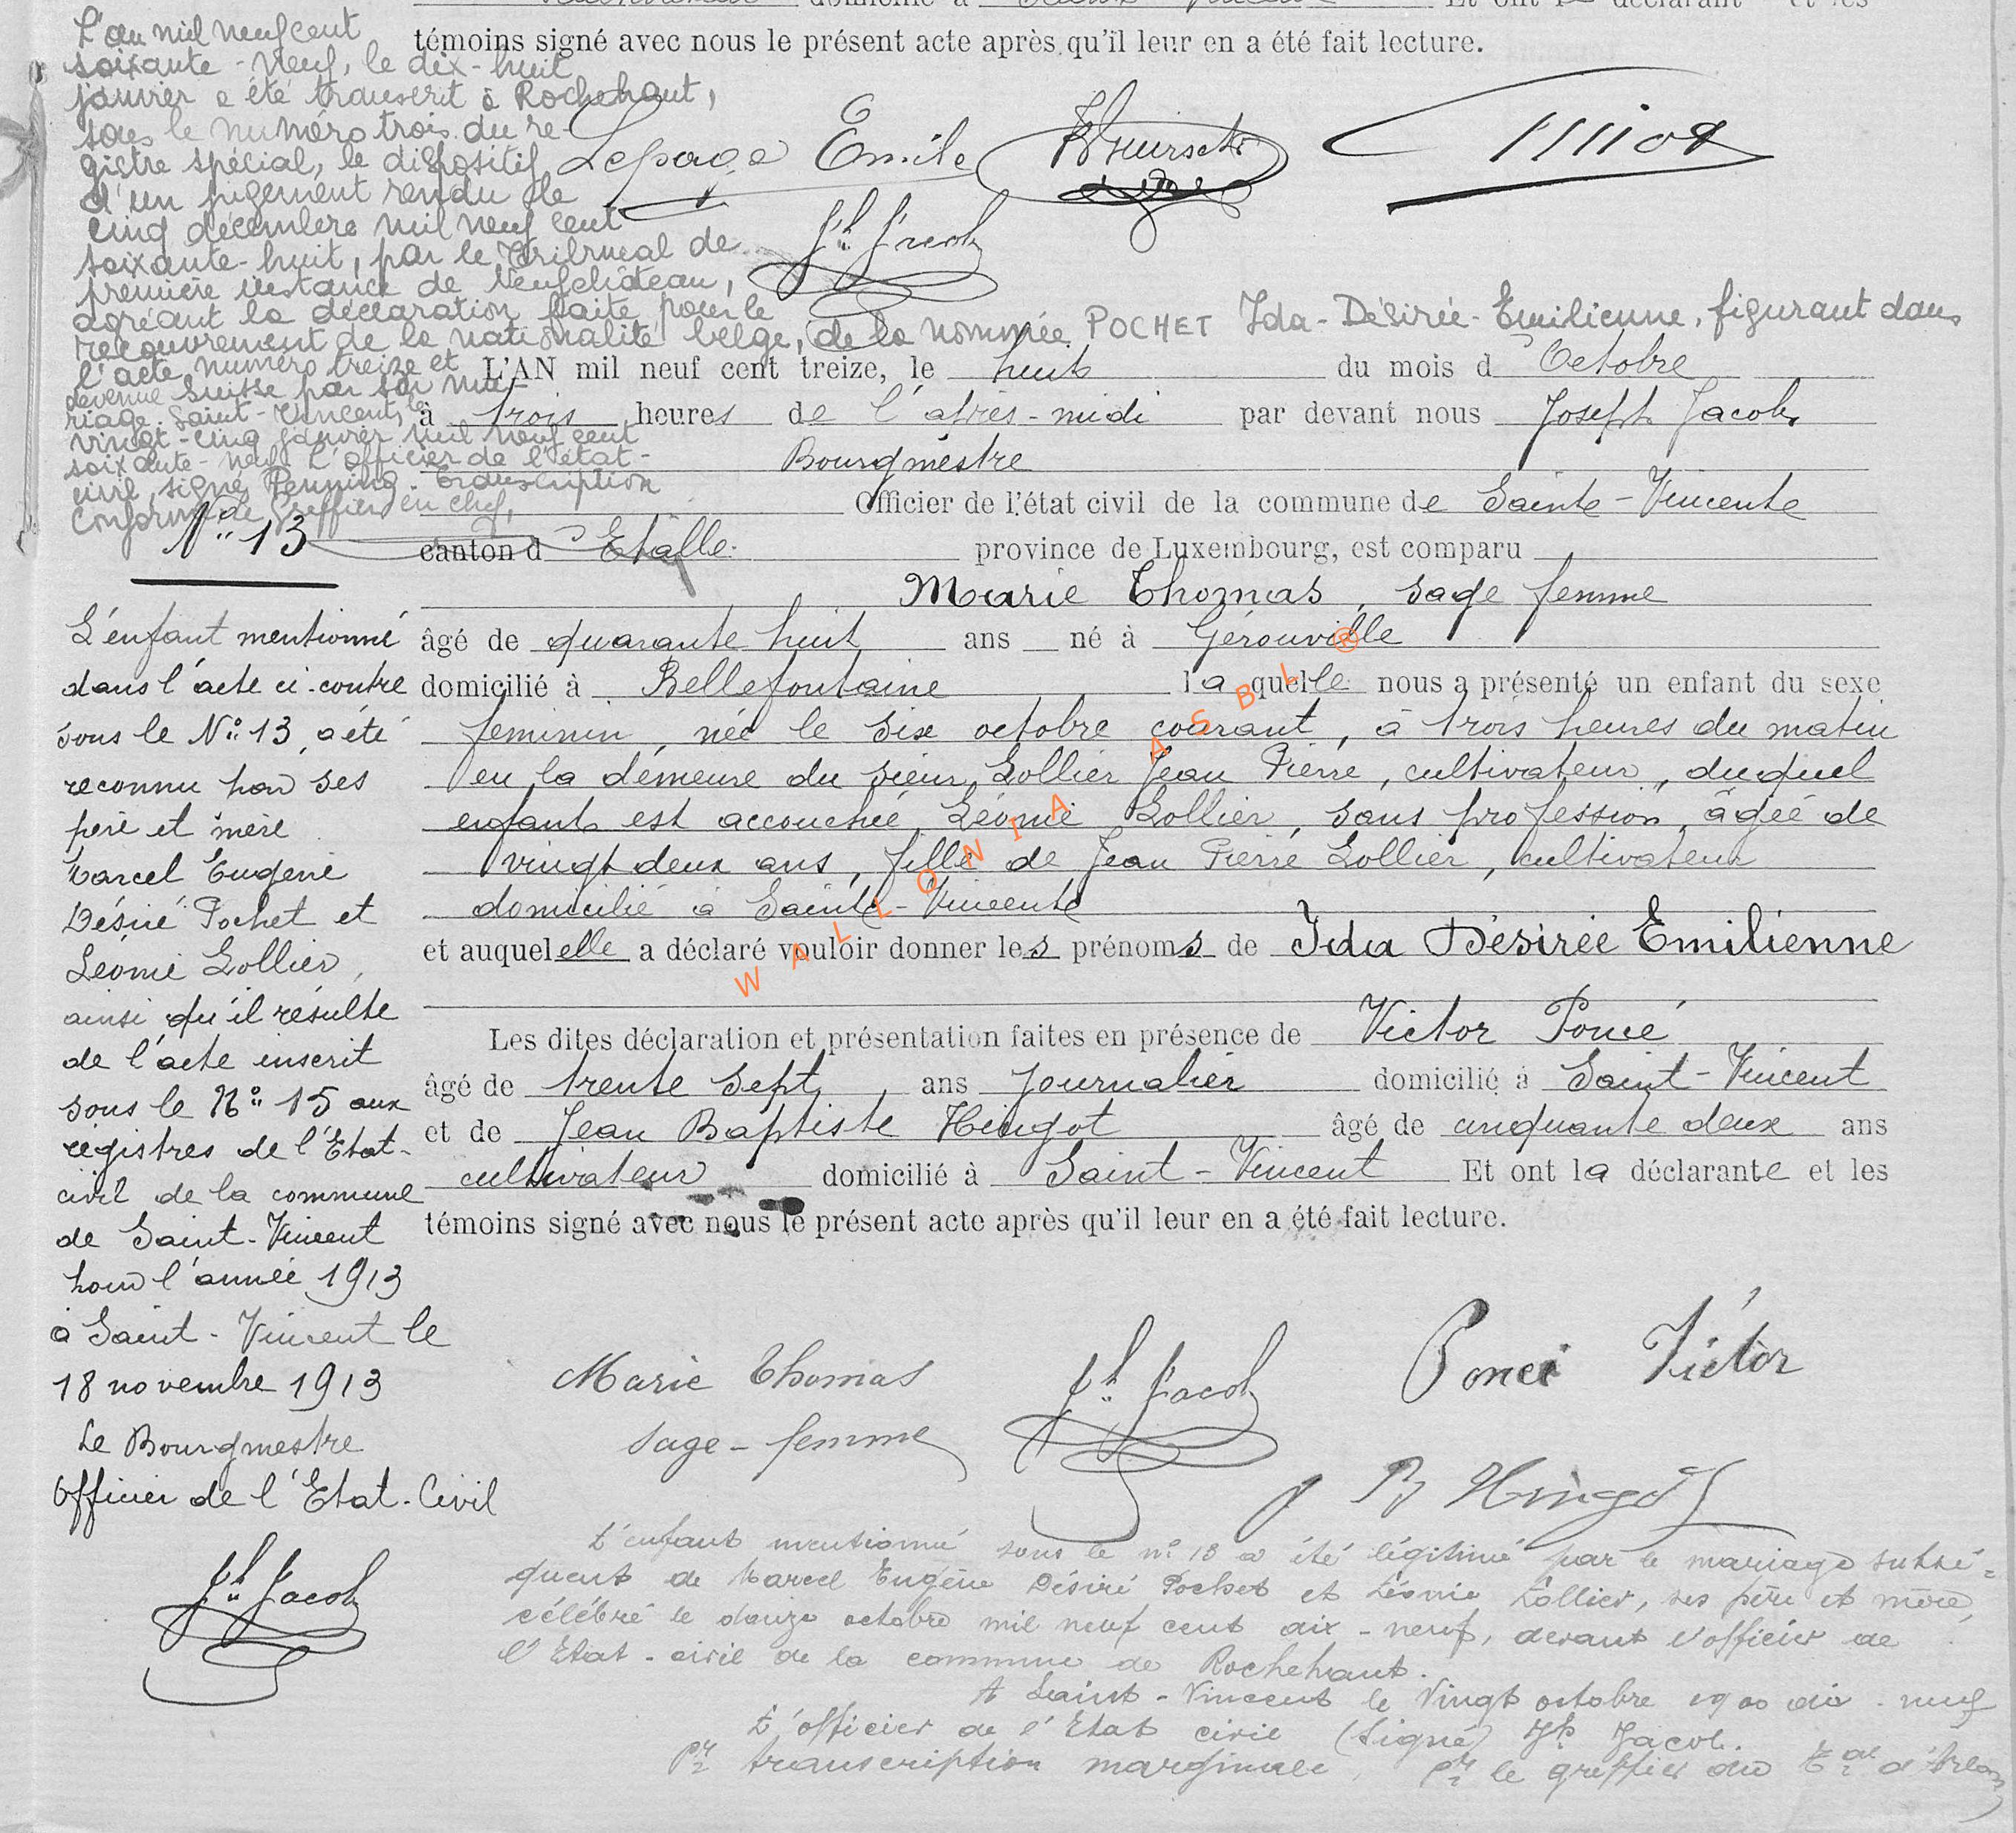 témoins signé avec nous le présent acte après qu'il leur en a été fait lecture.
Lepage Emile
Jh Jacob
L'an mil neuf cent
soixante-neuf, le dix-huit
janvier a été transcrit à Rochehaut,
sous le numéro trois du re-
gistre spécial, le dispositif
d'un jugement rendu le
cinq décembre mil neuf cent
soixante-huit, par le Tribunal de
première instance de Neufchâteau,
agréant la déclaration faite pour le
recouvrement de la nationalité belge, de la nommée POCHET Ida-Désirée-Emilienne, figurant dans
l'acte numéro treize et
devenue Suisse par son ma-
riage. Saint-Vincent, le
vingt-cinq janvier mil neuf cent
soixante-neuf. L'officier de l'état-
civil, signé Penning. Transcription
conforme de Greffier en chef,
N° 13
L'AN mil neuf cent treize, le huit du mois d'Octobre
à trois heures de l'après-midi par devant nous Joseph Jacob,
Bourgmestre
Officier de l'état civil de la commune de Sainte-Vincente
canton d'Etalle province de Luxembourg, est comparu
Marie Thomas, sage femme
âgé de quarante huit ans né à Gérouville
domicilié à Bellefontaine laquelle nous a présenté un enfant du sexe
feminin, née le six octobre courant, à trois heures du matin
en la demeure du sieur Lollier Jean Pierre, cultivateur, duquel
enfant est accouchée Léonie Lollier, sans profession, âgée de
vingt deux ans, fille de Jean Pierre Lollier, cultivateur
domicilié à Sainte-Vincente
et auquel elle a déclaré vouloir donner les prénoms de Ida Désirée Emilienne
Les dites déclaration et présentation faites en présence de Victor Poncé
âgé de trente sept ans journalier domicilié à Saint-Vincent
et de Jean Baptiste Hingot âgé de cinquante deux ans
cultivateur domicilié à Saint-Vincent Et ont la déclarante et les
témoins signé avec nous le présent acte après qu'il leur en a été fait lecture.
WALLONIA ASBL ®
Marie Thomas
sage-femme
Jh Jacob
Poncé Victor
J B Hingot
L'enfant mentionné
dans l'acte ci-contre
sous le N° 13, a été
reconnu par ses
père et mère
Marcel Eugène
Désiré Pochet et
Léonie Lollier,
ainsi qu'il résulte
de l'acte inscrit
sous le N° 15 aux
registres de l'Etat-
civil de la commune
de Saint-Vincent
pour l'année 1913
à Saint-Vincent le
18 novembre 1913
Le Bourgmestre
Officier de l'Etat-Civil
Jh Jacob
L'enfant mentionné sous le n° 13 a été légitimé par le mariage subsé-
quent de Marcel Eugène Désiré Pochet et Léonie Lollier, ses père et mère,
célébré le douze octobre mil neuf cent dix-neuf, devant l'officier de
l'Etat-civil de la commune de Rochehaut.
A Saint-Vincent le Vingt octobre 1900 dix-neuf
L'officier de l'Etat civil (signé) Jh Jacob.
Pr transcription marginale, Pr le greffier du Tal d'Arlon